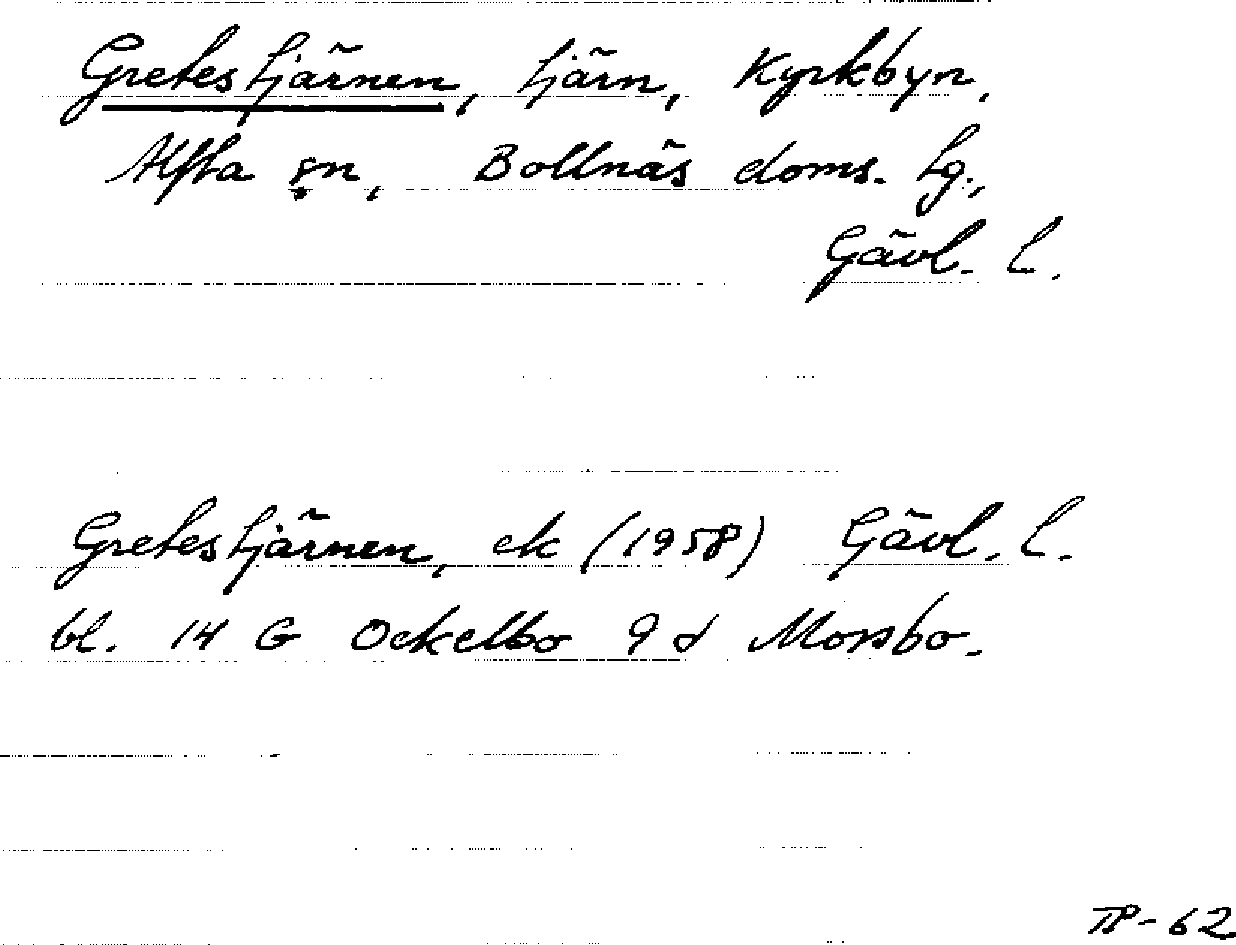 Gretestjärnen, tjärn, Kyrkbyn,
Alfta sn, Bollnäs doms. tg.,
Gävl. l.
Gretestjärnen, ek (1958) Gävl. l.
bl. 14 G Ockelbo 9 d Morsbo.
TP-62